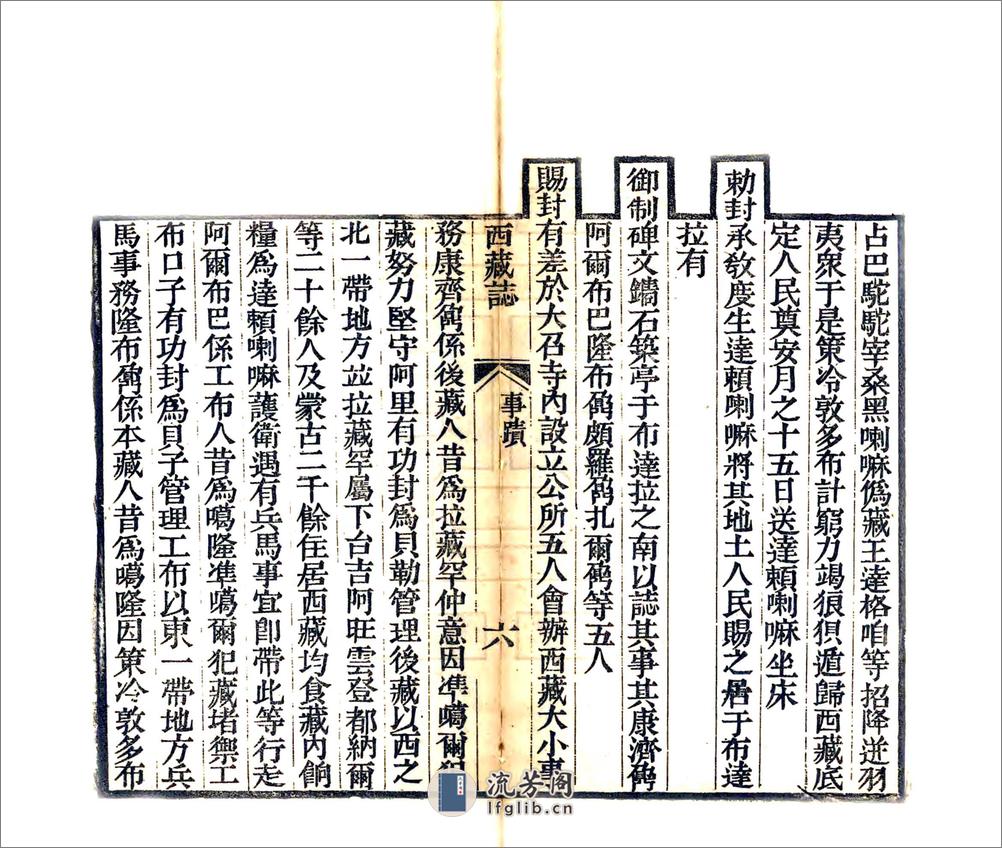 占巴駝駝宰桑黑喇嘛僞藏王達格咱等招降迸羽
夷衆于是策冷敦多布計窮力竭狼狽遁歸西藏底
定人民奠安月之十五日送達賴喇嘛坐床
勅封承敎度生達賴喇嘛將其地土人民賜之居于布達
拉有
御制碑文鐫石築亭于布達拉之南以誌其事其康濟鼐
阿爾布巴隆布鼐頗羅鼐扎爾鼐等五人
賜封有差於大召寺內設立公所五人會辦西藏大小事
西藏誌
事蹟
六
務康齊鼐係後藏人昔爲拉藏罕仲意因準噶爾犯
藏努力堅守阿里有功封爲貝勒管理後藏以西之
北一帶地方並拉藏罕屬下台吉阿旺雲登都納爾
等二十餘人及蒙古二千餘住居西藏均食藏內餉
糧爲達賴喇嘛護衛遇有兵馬事宜卽帶此等行走
阿爾布巴係工布人昔爲噶隆準噶爾犯藏堵禦工
布口子有功封爲貝子管理工布以東一帶地方兵
馬事務隆布鼐係本藏人昔爲噶隆因策冷敦多布
流芳阁
lfglib.cn